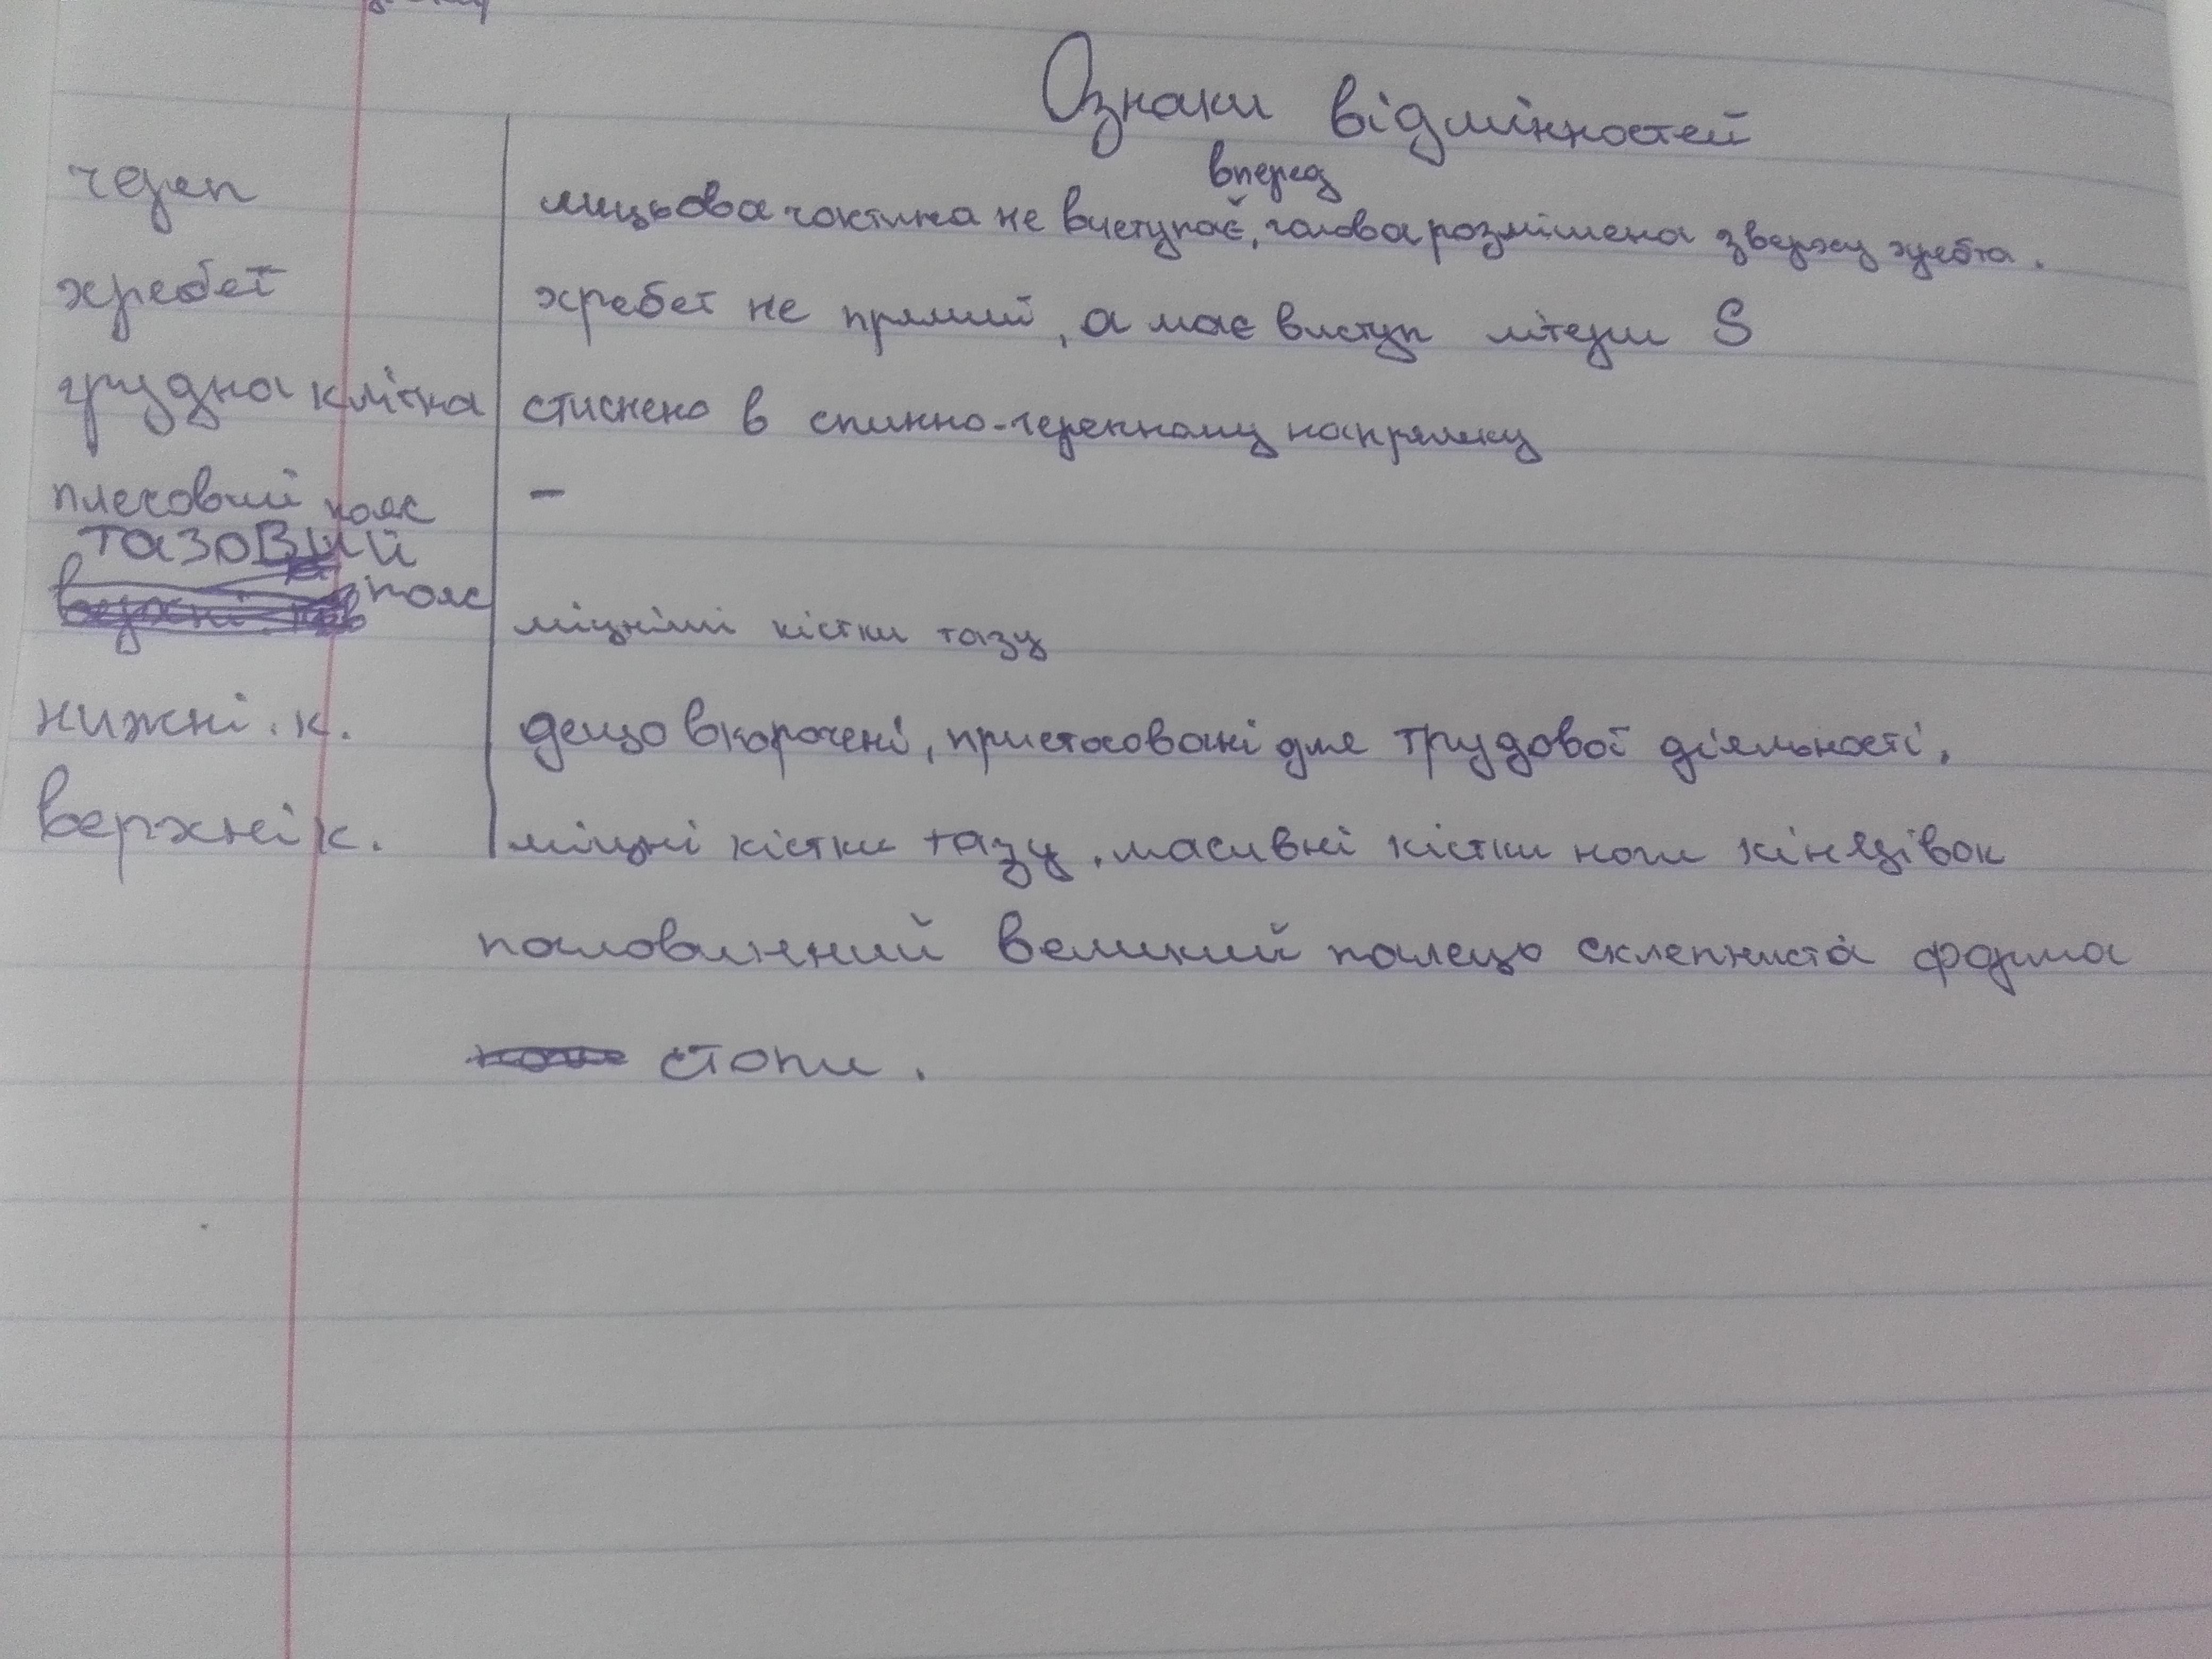 Ознаки відмінностей
череп
вперед
лицьова частина не виступає, голова розмішена зверху хребта.
хребет хребет не прямий, а має виступ літери S
грудна клітка стиснено в спинно-черепному напрямку
плечовий пояс –
тазовий
пояс міцніші кістки тазу
нижні. к. дещо вкорочені, пристосовані для трудової діяльності.
верхні к. міцні кістки тазу, масивні кістки ноги кінецівок
половинний великий палець склепниста форма
стопи.